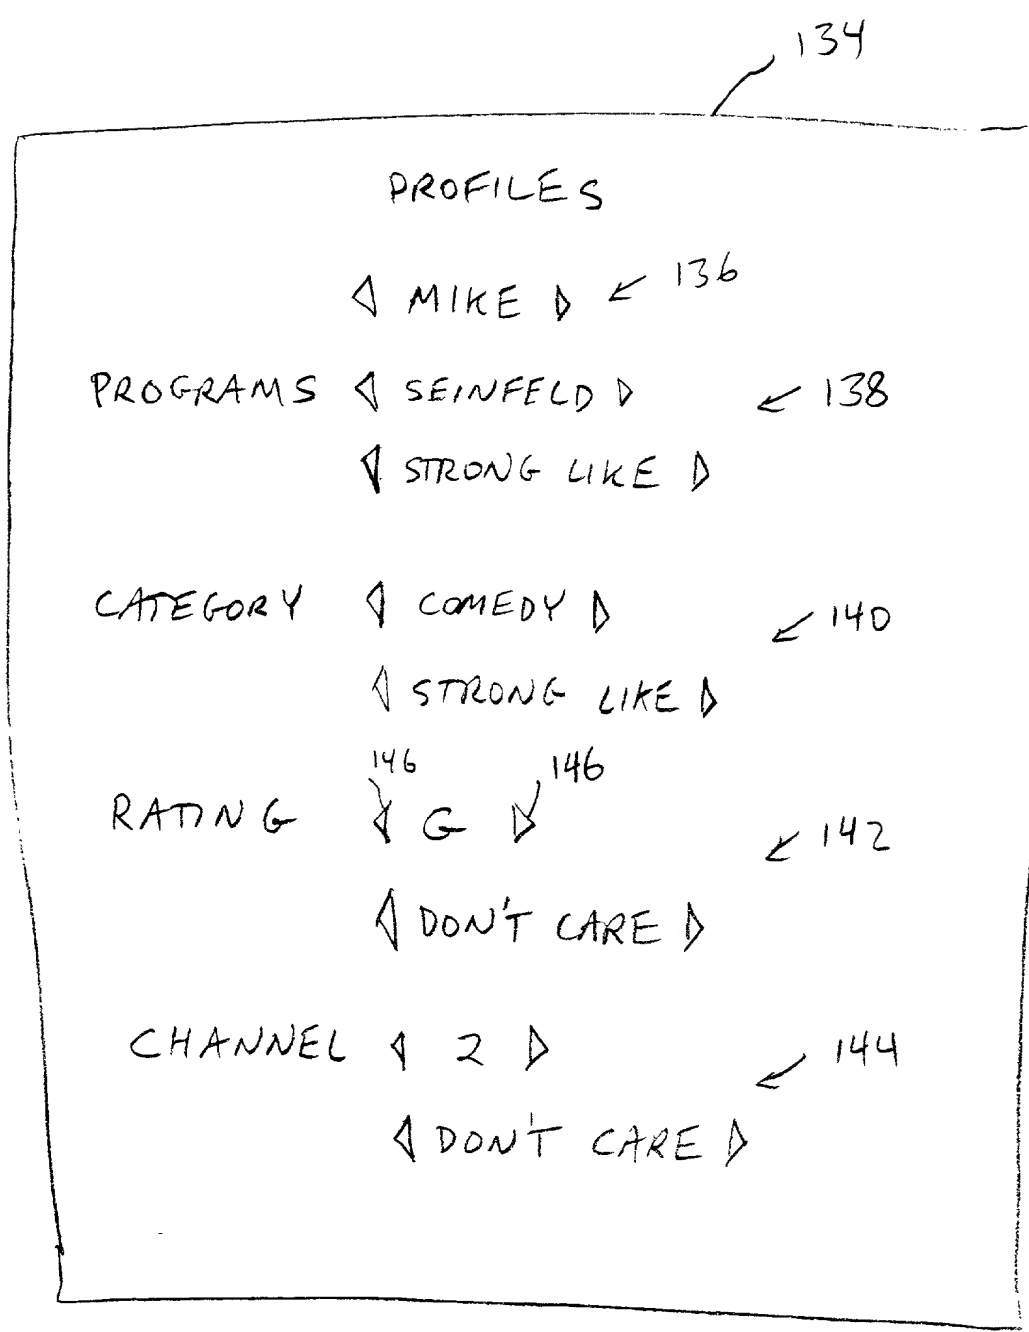 134
PROFILES
MIKE 136
PROGRAMS SEINFELD 138
STRONG LIKE
CATEGORY COMEDY 140
STRONG LIKE
146 146
RATING G 142
DON'T CARE
CHANNEL 2 144
DON'T CARE